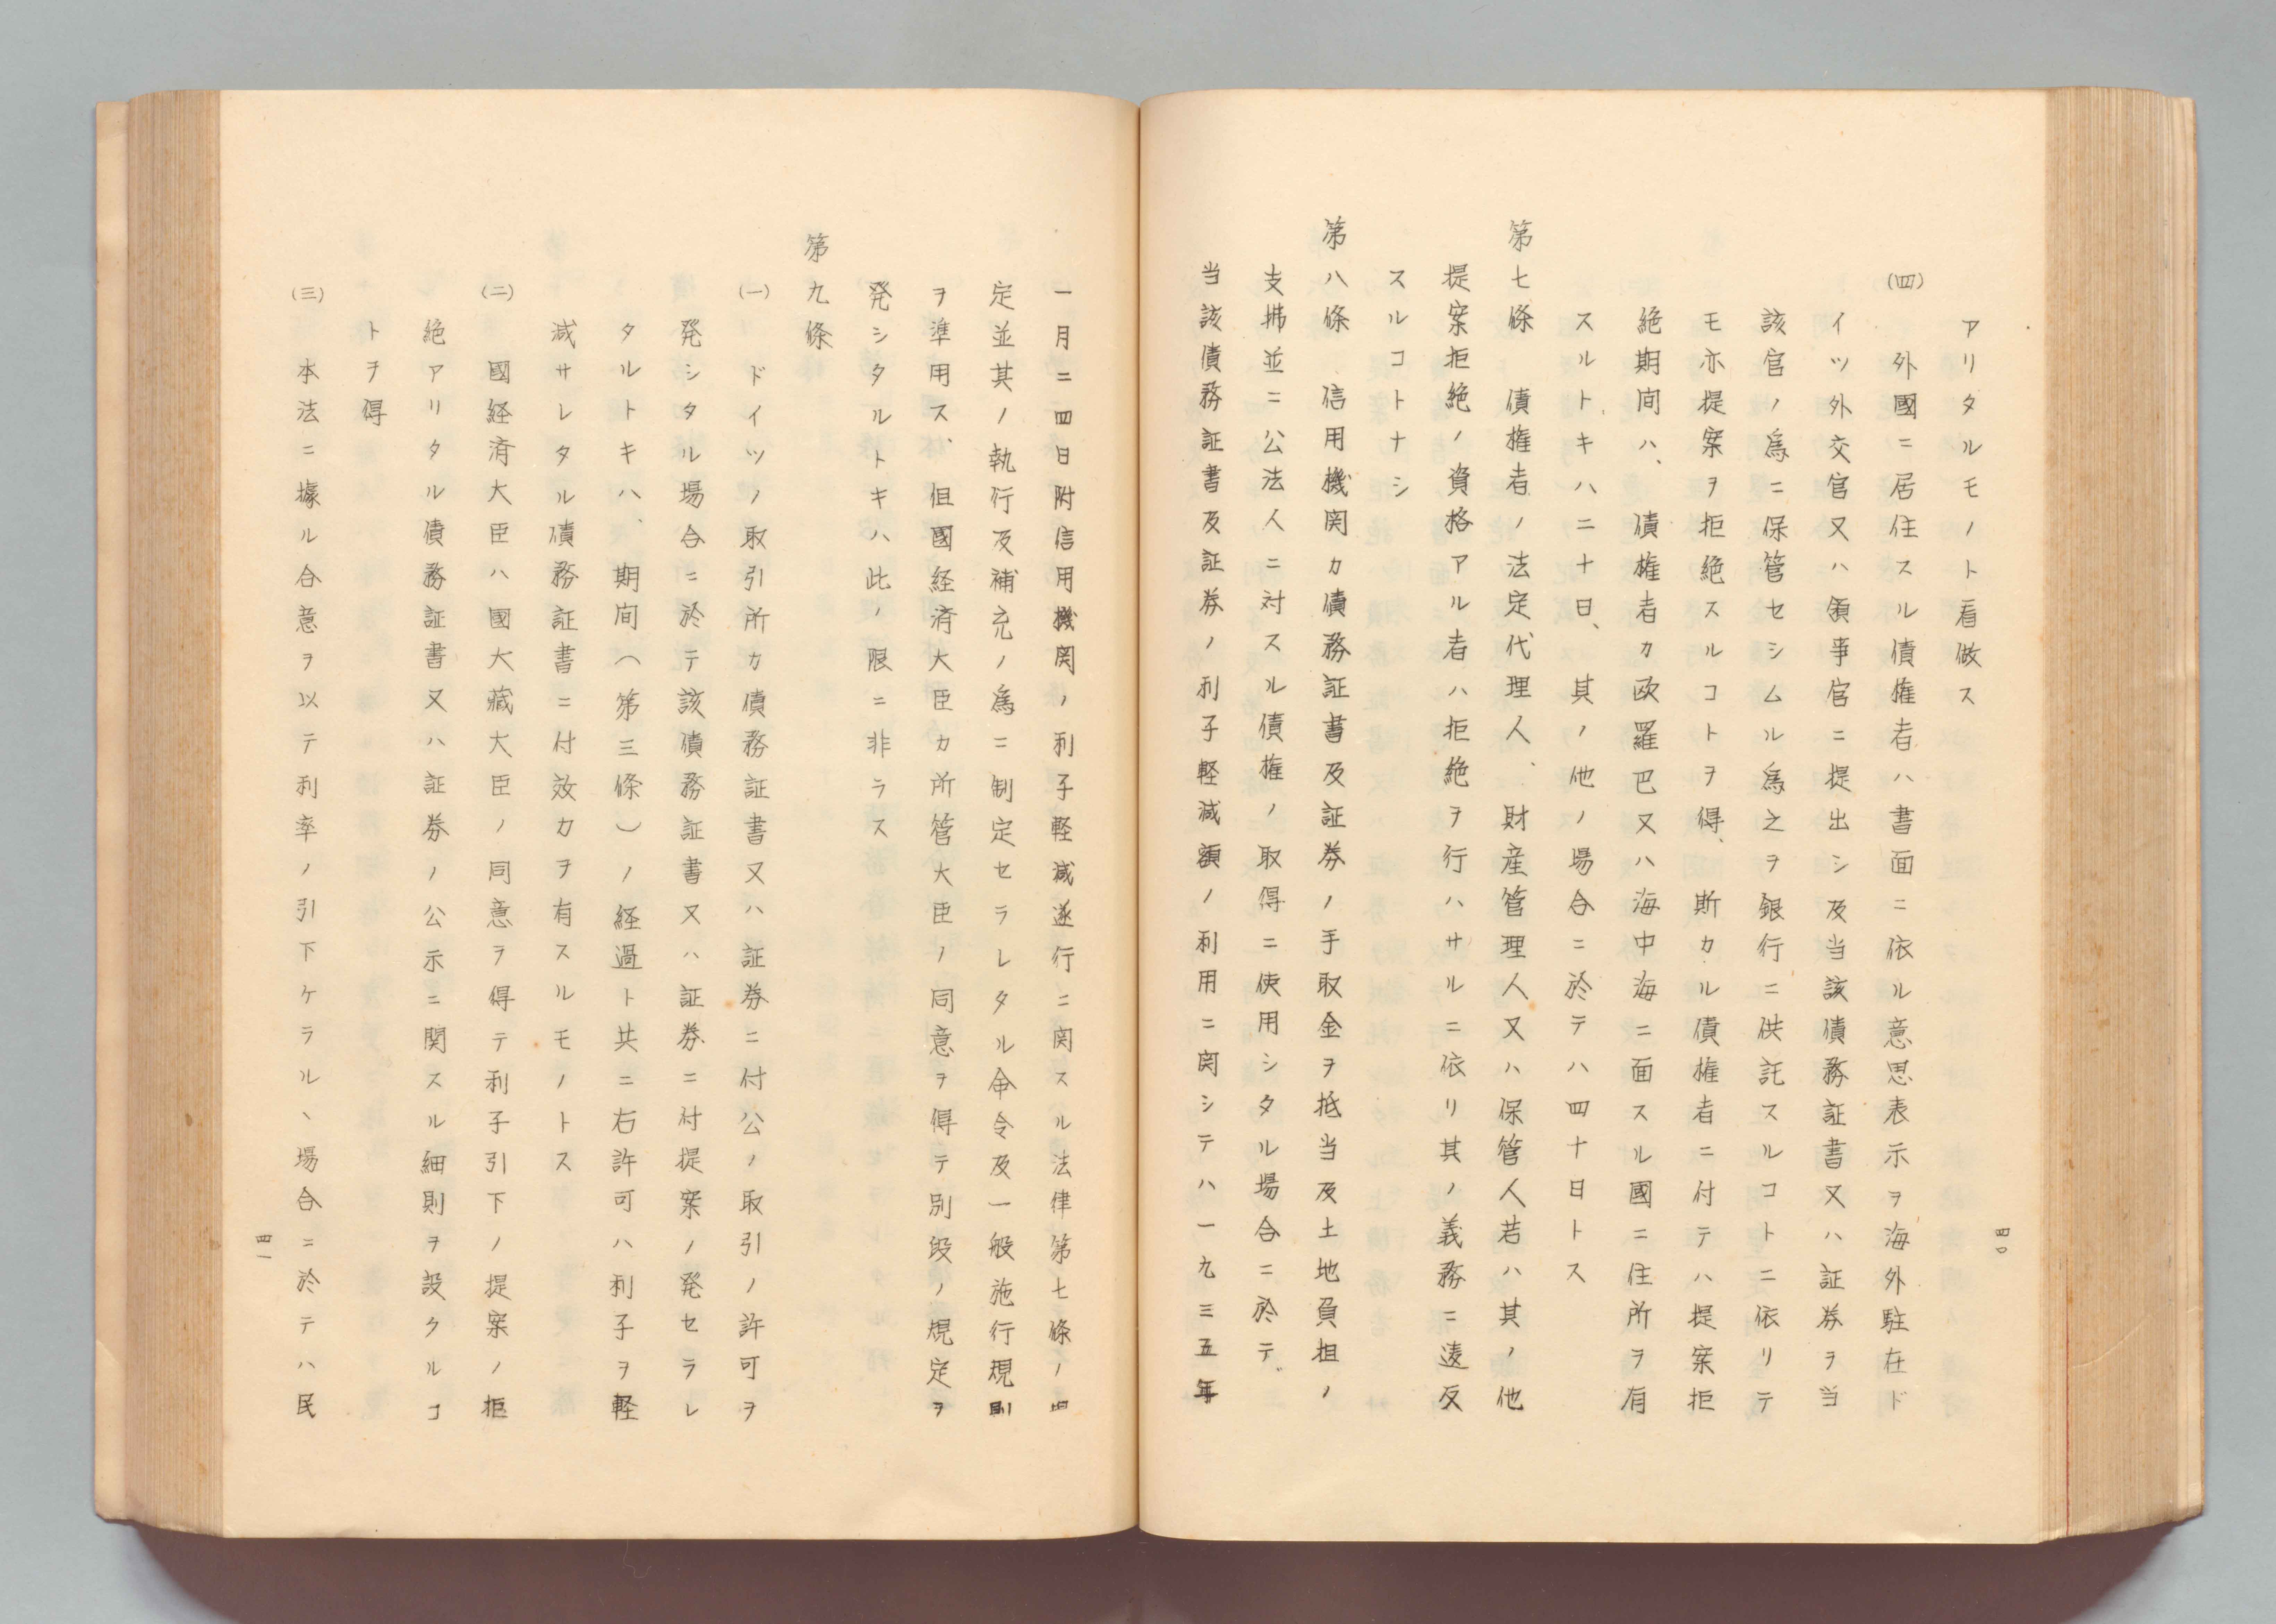 アリタルモノト看做ス
(四) 外國ニ居住スル債権者ハ書面ニ依ル意思表示ヲ海外駐在ド
イツ外交官又ハ領事官ニ提出シ及当該債務証書又ハ証券ヲ当
該官ノ爲ニ保管セシムル爲之ヲ銀行ニ供託スルコトニ依リテ
モ亦提案ヲ拒絶スルコトヲ得、斯カル債権者ニ付テハ提案拒
絶期间ハ、債権者カ欧羅巴又ハ海中海ニ面スル國ニ住所ヲ有
スルトキハ二十日、其ノ他ノ場合ニ於テハ四十日トス
第七條 債権者ノ法定代理人、財産管理人又ハ保管人若ハ其ノ他
提案拒絶ノ資格アル者ハ拒絶ヲ行ハサルニ依リ其ノ義務ニ違反
スルコトナシ
第八條 信用機関カ債務証書及証券ノ手取金ヲ抵当及土地負担ノ
支拂並ニ公法人ニ対スル債権ノ取得ニ使用シタル場合ニ於テ
当該債務証書及証券ノ利子軽減額ノ利用ニ関シテハ一九三五年
四〇
一月二四日附信用機関ノ利子軽減遂行ニ関スル法律第七條ノ四
定並其ノ執行及補充ノ爲ニ制定セラレタル命令及一般施行規則
ヲ準用ス、但國経済大臣カ所管大臣ノ同意ヲ得テ別段ノ規定ヲ
発シタルトキハ此ノ限ニ非ラス
第九條
(一) ドイツノ取引所カ債務証書又ハ証券ニ付公ノ取引ノ許可ヲ
発シタル場合ニ於テ該債務証書又ハ証券ニ付提案ノ発セラレ
タルトキハ、期间(第三條)ノ経過ト共ニ右許可ハ利子ヲ軽
減サレタル債務証書ニ付效力ヲ有スルモノトス
(二) 國経済大臣ハ國大藏大臣ノ同意ヲ得テ利子引下ノ提案ノ拒
絶アリタル債務証書又ハ証券ノ公示ニ関スル細則ヲ設クルコ
トヲ得
(三) 本法ニ據ル合意ヲ以テ利率ノ引下ケラルヽ場合ニ於テハ民
四一